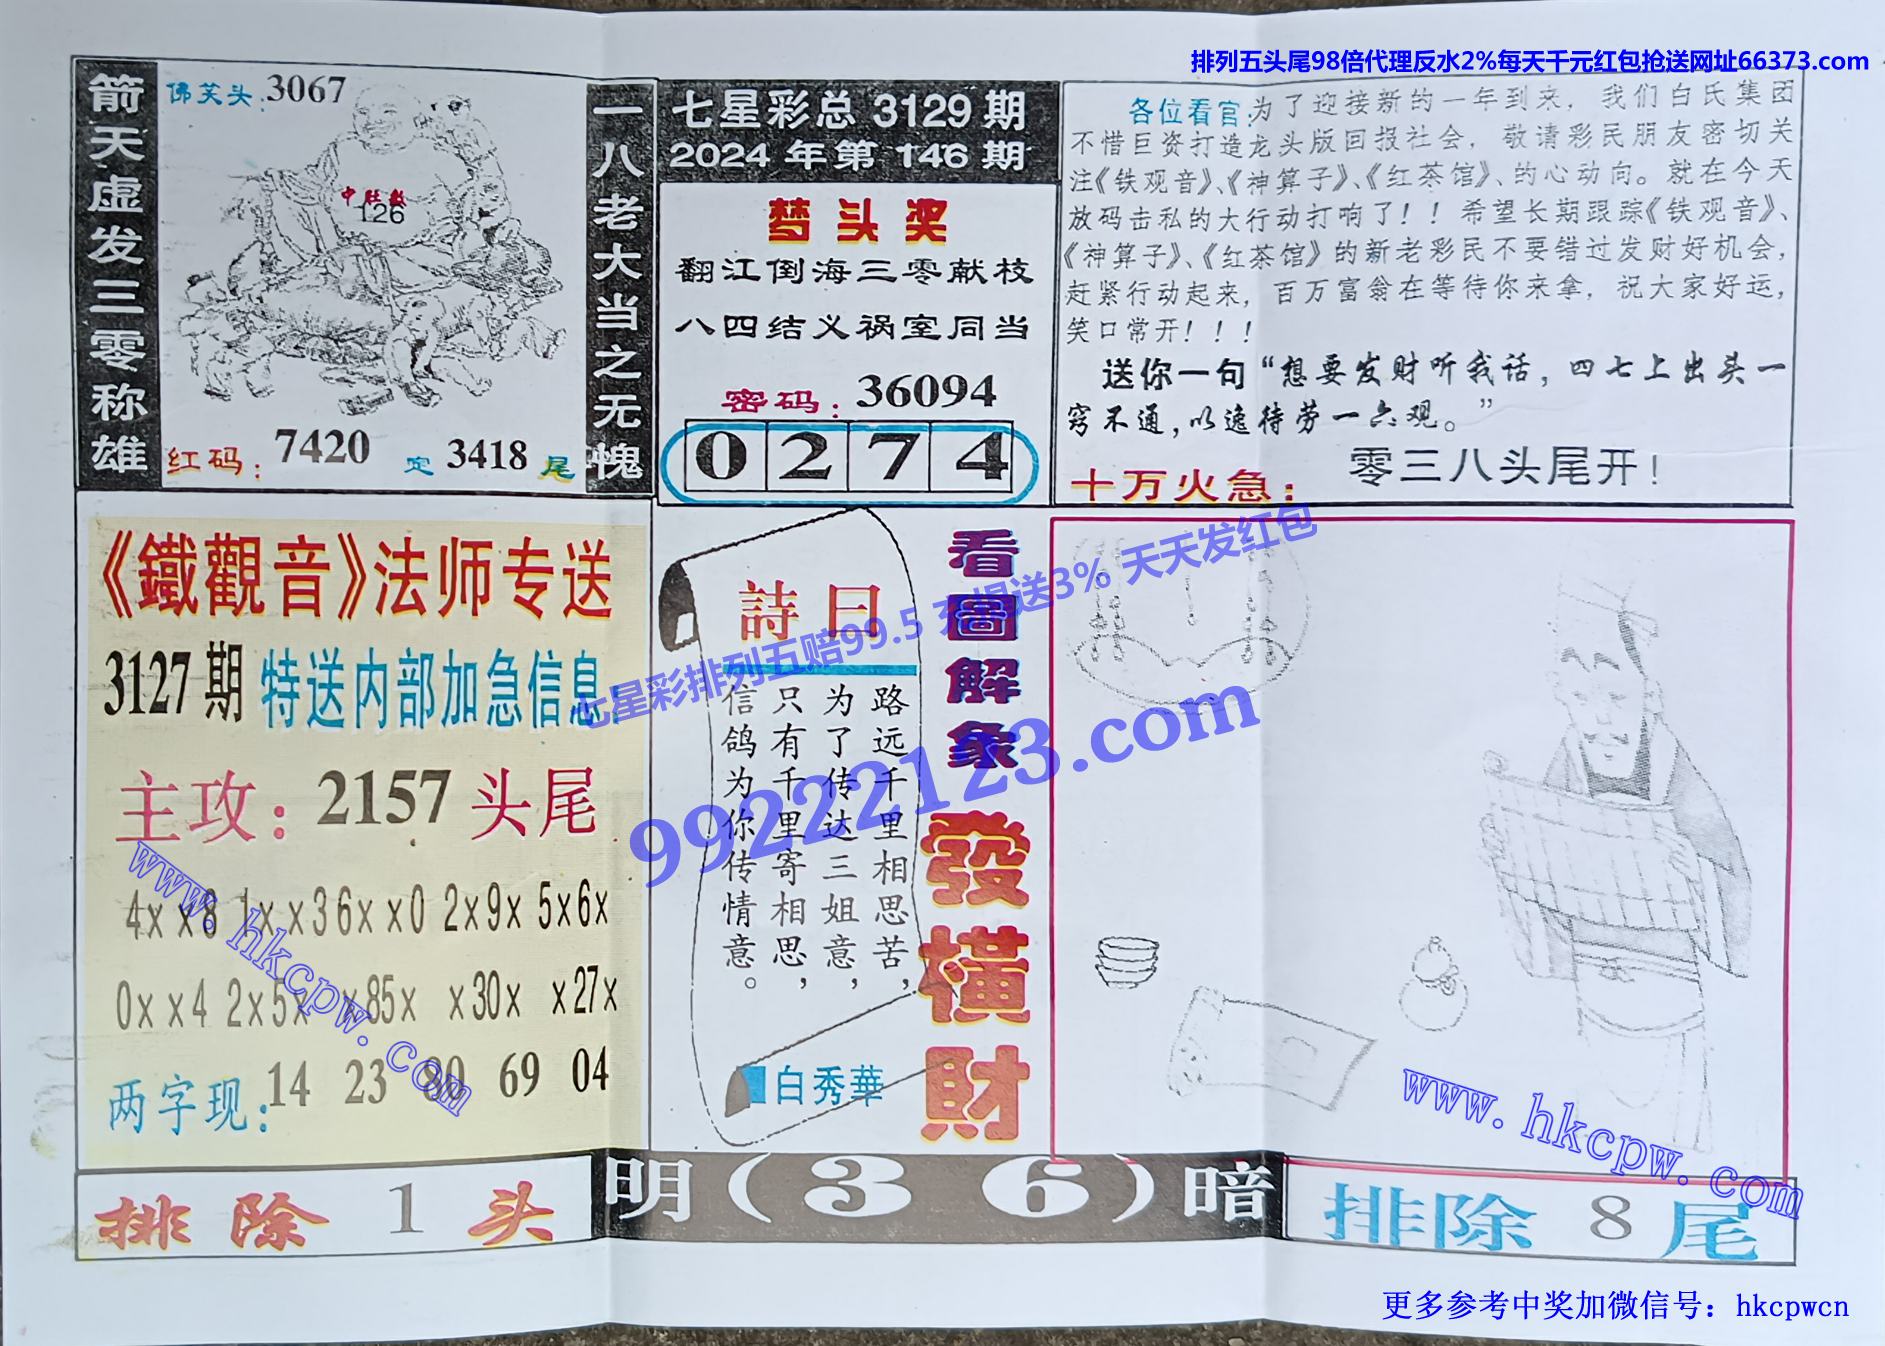 排列五头尾98倍代理反水2%每天千元红包抢送网址66373.com
箭天虚发三零称雄
佛笑头:3067
中肚数
126
红码:7420 定3418尾
一八老大当之无愧
七星彩总3129期
2024年第146期
梦头奖
翻江倒海三零献枝
八四结义祸室同当
密码:36094
0274
各位看官:为了迎接新的一年到来，我们白氏集团
不惜巨资打造龙头版回报社会，敬请彩民朋友密切关
注《铁观音》、《神算子》、《红茶馆》、的心动向。就在今天
放码击私的大行动打响了！！希望长期跟踪《铁观音》、
《神算子》、《红茶馆》的新老彩民不要错过发财好机会，
赶紧行动起来，百万富翁在等待你来拿，祝大家好运，
笑口常开！！！
送你一句“想要发财听我话，四七上出头一
窍不通，以逸待劳一六观。”
十万火急：零三八头尾开！
《鐵觀音》法师专送
3127期特送内部加急信息
主攻：2157头尾
4xx8 1xx3 6xx0 2x9x 5x6x
0xx4 2x5x x85x x30x x27x
两字现：14 23 80 69 04
詩曰
路远千里相思苦，
为了传达三姐意，
只有千里寄相思，
信鸽为你传情意。
白秀華
看圖解象
發橫財
七星彩排列五赔99.5 送3% 天天发红包
99222123.com
www.hkcpw.com
www.hkcpw.com
排除1头
明(36)暗
排除8尾
更多参考中奖加微信号：hkcpwcn